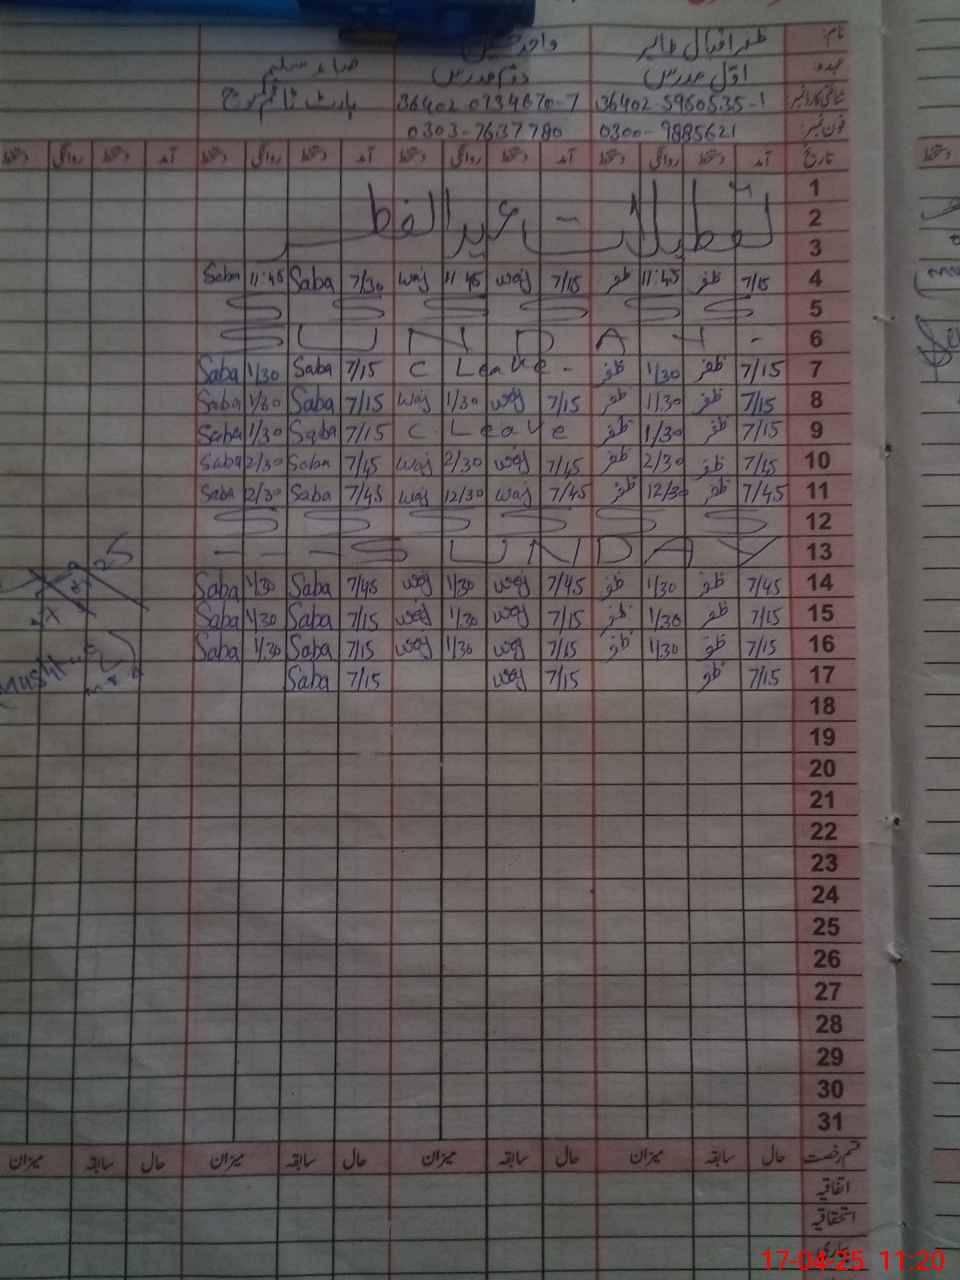 نام: ظفر اقبال طاہر واجد حسین صباء سلیم
عہدہ: اوّل مدرس دوئم مدرس پارٹ ٹائم کوچ
شناختی کارڈ نمبر 36402-5960535-1 36402-0734670-7
فون نمبر: 0300-9885621 0303-7637780
تاریخ آمد دستخط روانگی دستخط آمد دستخط روانگی دستخط آمد دستخط روانگی دستخط آمد دستخط روانگی دستخط
1
2 تعطیلات - عید الفطر
3
4 7/15 ظفر 11:45 ظفر 7/15 waj 11:45 waj 7/30 Saba 11:45 Saba
5
6 SUNDAY -
7 7/15 ظفر 1/30 ظفر C Leave - 7/15 Saba 1/30 Saba
8 7/15 ظفر 1/30 ظفر 7/15 waj 1/30 waj 7/15 Saba 1/30 Saba
9 7/15 ظفر 1/30 ظفر C. Leave 7/15 Saba 1/30 Saba
10 7/45 ظفر 2/30 ظفر 7/45 waj 2/30 waj 7/45 Saba 2/30 Saba
11 7/45 ظفر 12/30 ظفر 7/45 waj 12/30 waj 7/45 Saba 2/30 Saba
12
13 - - - SUNDAY
14 7/45 ظفر 1/30 ظفر 7/45 waj 1/30 waj 7/45 Saba 1/30 Saba
15 7/15 ظفر 1/30 ظفر 7/15 waj 1/30 waj 7/15 Saba 1/30 Saba
16 7/15 ظفر 1/30 ظفر 7/15 waj 1/30 waj 7/15 Saba 1/30 Saba
17 7/15 ظفر 7/15 waj 7/15 Saba
18
19
20
21
22
23
24
25
26
27
28
29
30
31
قسم رخصت حال سابقہ میزان حال سابقہ میزان حال سابقہ میزان حال سابقہ میزان
اتفاقیہ
استحقاقیہ
بیماری
17-04-25 11:20